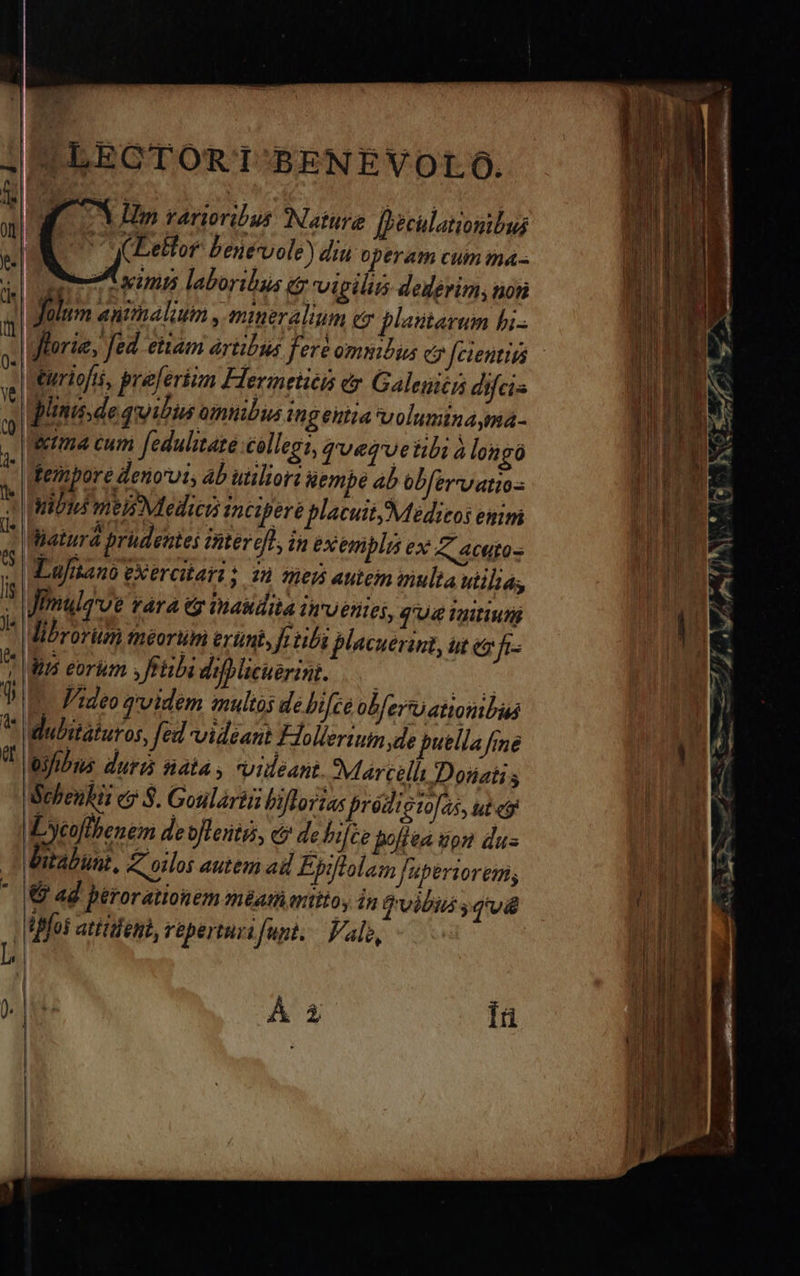 LECTORI BENEVOLO.
CUm rarioribus Naturæ ſpeculationibus
(Lector benevole) diu operam cum ma-
ximis laboribus & vigiliis dederim, non
ſolum animalium, mineralium & plantarum hi-
ſtoriæ, ſed etiam artibus ferè omnibus & ſcientiis
curioſis, præſertim Hermeticis & Galenicis diſci-
plinis, de quibus omnibus ingentia volumina, ma-
xima cum ſedulitate collegi, quæque tibi à longo
tempore denovi, ab utiliori nempè ab obſervatio-
nibus meis Medicis incipere placuit, Medicos enim
naturâ prudentes intereſt, in exemplis ex Zacuto
Luſitano exercitari; in meis autem multa utilia,
ſimulque rara & inaudita invenies, quæ initium
librorum meorum erunt, ſi tibi placuerint, ut & fi-
nis eorum, ſi tibi diſplicuerint.
Video quidem multos de hiſce obſervationibus
dubitaturos, ſed videant Hollerium, de puella ſine
oſſibus duris nata, videant Marcelli Donati,
Schenkii & S. Goulartii hiſtorias prodigioſas, ut &
Lycoſthenem de oſtentis, & de hiſce poſtea non du-
bitabunt, Zoilos autem ad Epiſtolam ſuperiorem,
& ad perorationem meam mitto, in quibus, quæ
ipſos attinent, reperturi ſunt. Vale,
A 2 In